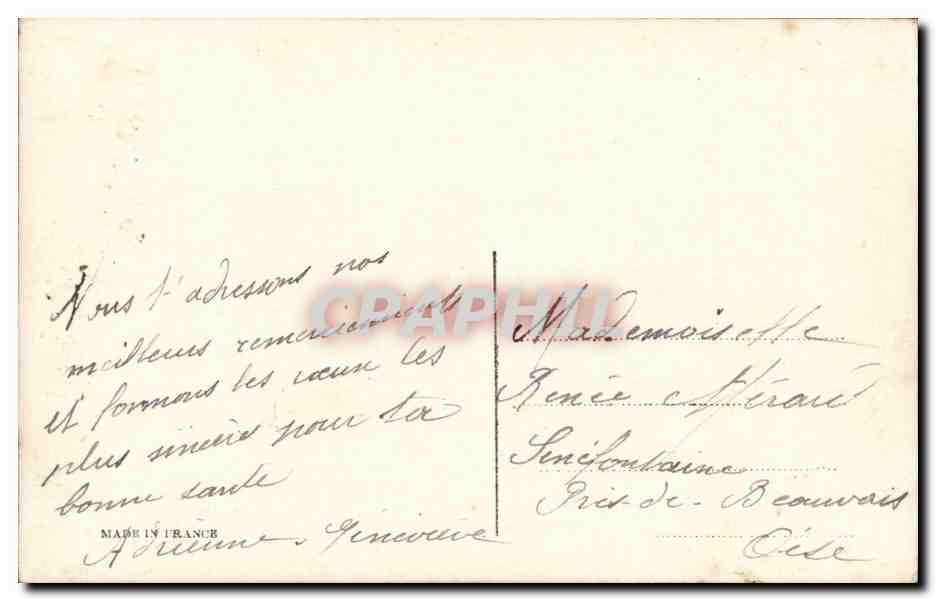 Nous t'adressons nos
meilleurs remerciements
et formons les vœux les
plus sincère pour ta
bonne santé
Adrienne. Géneviève
MADE IN FRANCE
CPAPHIL
Mademoiselle
Renée
Sénéfontaine
Près-de-Beauvais
Oise